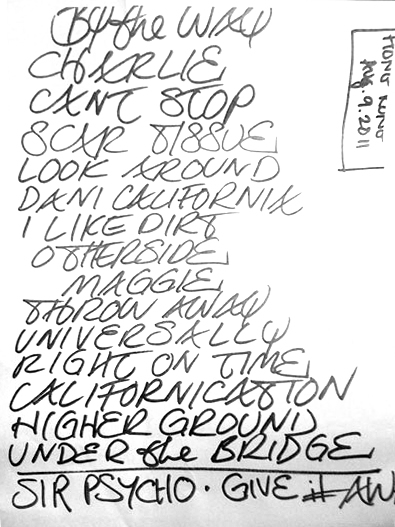 By the WAY
CHARLIE
CANT STOP
SCAR TISSUE
LOOK AROUND
DANI CALIFORNIA
I LIKE DIRT
OTHERSIDE
MAGGIE
THROW AWAY
UNIVERSALLY
RIGHT ON TIME
CALIFORNICATION
HIGHER GROUND
UNDER the BRIDGE
SIR PSYCHO · GIVE it AW
HONG KONG
Aug. 9. 2011